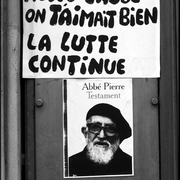 ON T'AIMAIT BIEN
LA LUTTE
CONTINUE
Abbé Pierre
Testament